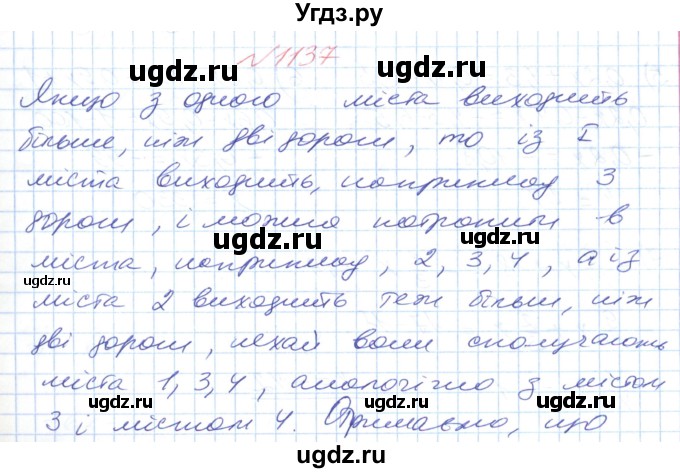 Угдз.ру
№1137
Якщо з одного міста виходить
більше, ніж дві дороги, то із I
міста виходить, наприклад 3
дороги, і можна потрапити в
міста, наприклад, 2, 3, 4, а із
міста 2 виходить теж більш, ніж
дві дороги, нехай вони сполучають
міста 1, 3, 4, аналогічно з містом
3 і містом 4. Отримаємо, що
ugdz.ru ugdz.ru
ugdz.ru
ugdz.ru ugdz.ru
ugdz.ru ugdz.ru
ugdz.ru
ugdz.ru ugdz.ru
ugdz.ru
ugdz.ru ugdz.ru